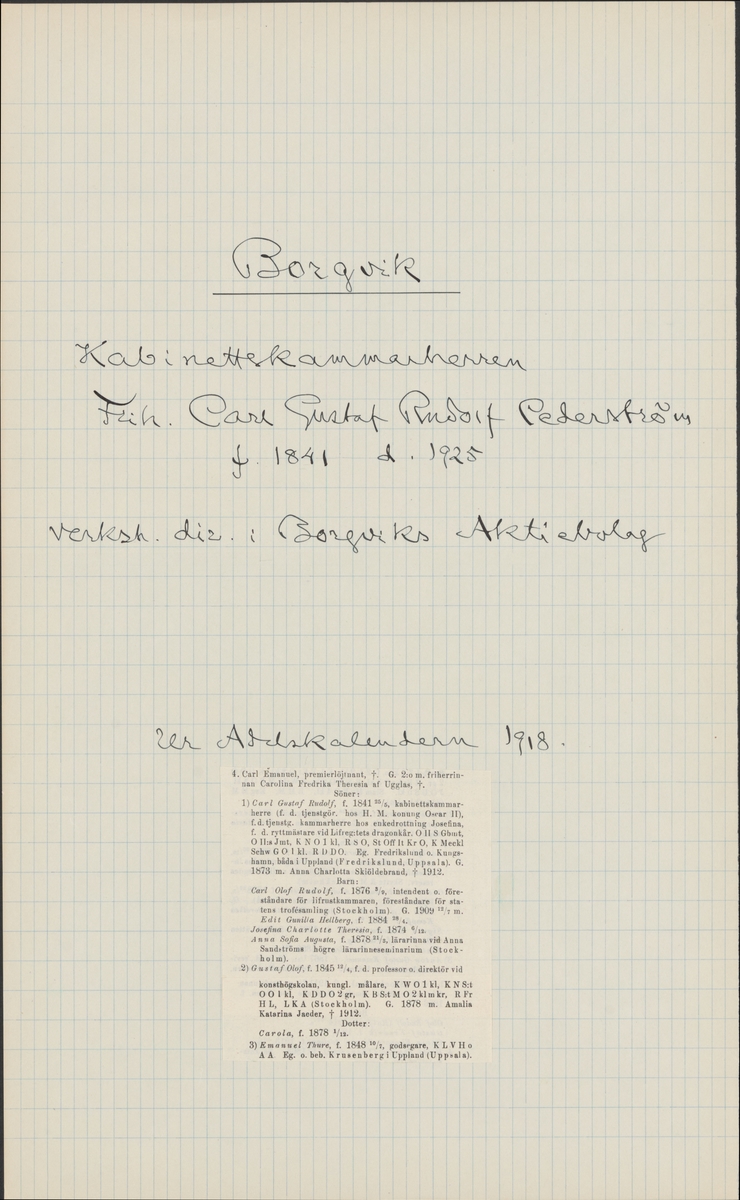 Borgvik
Kabinettskammarherren
Frih. Carl Gustaf Rudolf Cederström
f. 1841 d. 1925
verksh. dir. i Borgviks Aktiebolag
Ur Adelskalendern 1918.
4. Carl Emanuel, premierlöjtnant, †. G. 2:o m. friherrin-
nan Carolina Fredrika Theresia af Ugglas, †.
Söner:
1) Carl Gustaf Rudolf, f. 1841 25/2, kabinettskammar-
herre (f. d. tjenstgör. hos H. M. konung Oscar II),
f. d. tjenstg. kammarherre hos enkedrottning Josefina,
f. d. ryttmästare vid Lifreg:tets dragonkår. O II S Gbmt,
O II:s Jmt, K N O 1 kl, R S O, St Off It Kr O, K Meckl
Schw G O 1 kl, R D D O. Eg. Fredrikslund o. Kungs-
hamn, båda i Uppland (Fredrikslund, Uppsala). G.
1873 m. Anna Charlotta Skiöldebrand, † 1912.
Barn:
Carl Olof Rudolf, f. 1876 2/9, intendent o. före-
ståndare för lifrustkammaren, föreståndare för sta-
tens trofésamling (Stockholm). G. 1909 12/7 m.
Edit Gunilla Hellberg, f. 1884 28/4.
Josefina Charlotte Theresia, f. 1874 6/12.
Anna Sofia Augusta, f. 1878 21/2, lärarinna vid Anna
Sandströms högre lärarinneseminarium (Stock-
holm).
2) Gustaf Olof, f. 1845 12/4, f. d. professor o. direktör vid
konsthögskolan, kungl. målare, K W O 1 kl, K N S:t
O O 1 kl, K D D O 2 gr, K B S:t M O 2 kl m kr, R Fr
H L, L K A (Stockholm). G. 1878 m. Amalia
Katarina Jaeder, † 1912.
Dotter:
Carola, f. 1878 2/12.
3) Emanuel Thure, f. 1848 10/7, godsegare, K L V H o
A A Eg. o. beb. Krusenberg i Uppland (Uppsala).